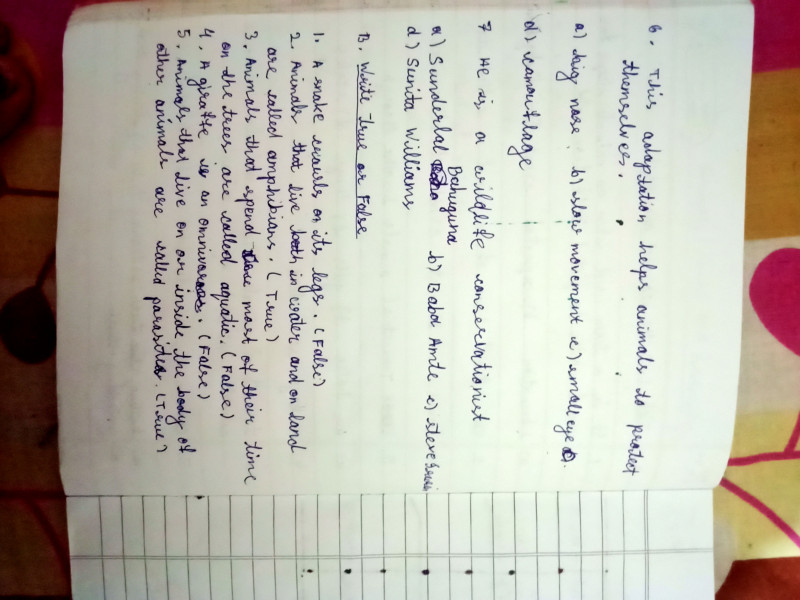 6. This adaptation helps animals to protect
themselves.
a) big nose b) slow movement c) small eye
d) camouflage
7 He is a wildlife conservationist
a) Sunderlal Bahuguna b) Baba Amte c) Steve
d) Sunita Williams
B. Write True or False
1. A snake crawls on its legs. (False)
2. Animals that live both in water and on land
are called amphibians. (True)
3. Animals that spend most of their time
on the trees are called aquatic. (False)
4. A giraffe is an omnivorous. (False)
5. Animals that live on or inside the body of
other animals are called parasites. (True)